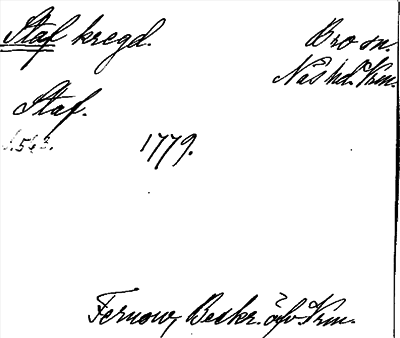 Staf kregd.
Bro sn.
Näs hd. Vrm.
Staf.
s. 543.
1779.
Fernow, Beskr. öfv. Vrm.